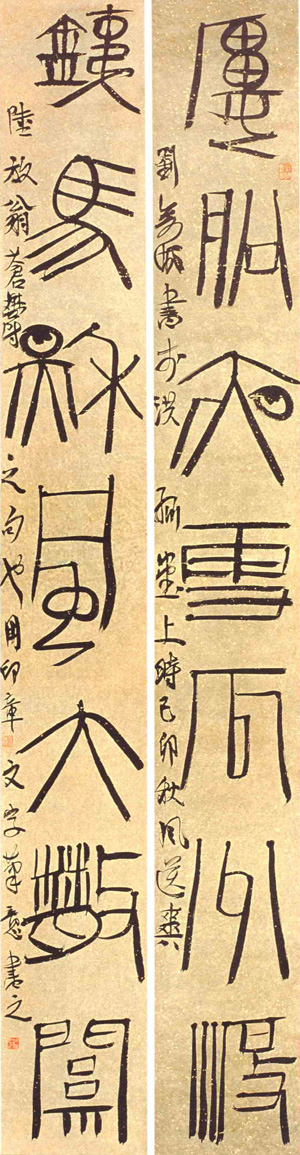 樓船夜雪瓜州渡
劉彥湖書於上時己卯秋風送爽
鐵馬秋風大散關
陸放翁蒼之句也用印章文字筆意書之